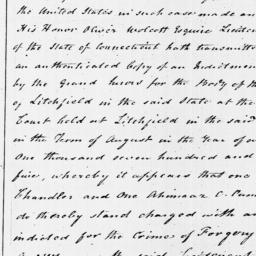 the United States in such case made an
His Honor Oliver Wolcott Esquire Lieuten
of the State of Connecticut hath transmitte
an authenticated Copy of an Indictmen
by the Grand Jurors for the Body of th
of Litchfield in the said State at the
Court held at Litchfield in the said
in the Term of August in the Year of o
One thousand seven hundred and
five, whereby it appears that one
Chandler and One Ahimaaz C. Pum
do thereby stand charged with an
indicted for the Crimes of Forgery
the said Lieutenant